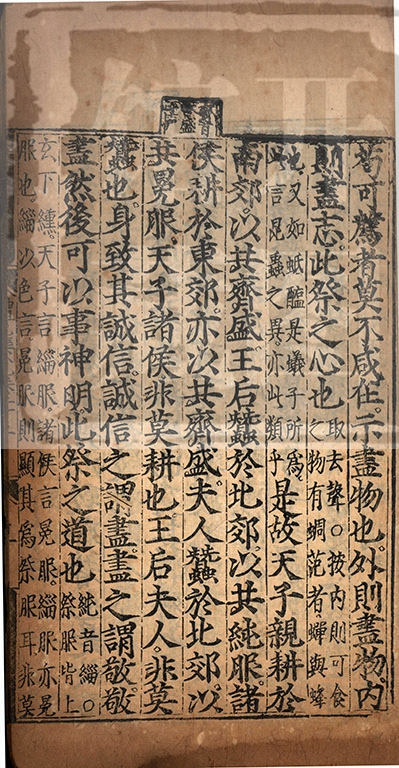 苟可薦者莫不咸在示盡物也外則盡物内
則盡志此祭之心也
取去聲○按内則可食
之物有蜩范者蟬與蜂
也又如蚳醢是蟻子所爲
言昆蟲之異亦此類乎
是故天子親耕於
南郊以共齊盛王后蠶於北郊以共純服諸
侯耕於東郊亦以共齊盛夫人蠶於北郊以
共冕服天子諸侯非莫耕也王后夫人非莫
蠶也身致其誠信誠信之謂盡盡之謂敬敬
盡然後可以事神明此祭之道也
純音緇○
祭服皆上
玄下纁天子言緇服諸侯言冕服緇服亦冕
服也緇以色言冕服則顯其爲祭服耳非莫